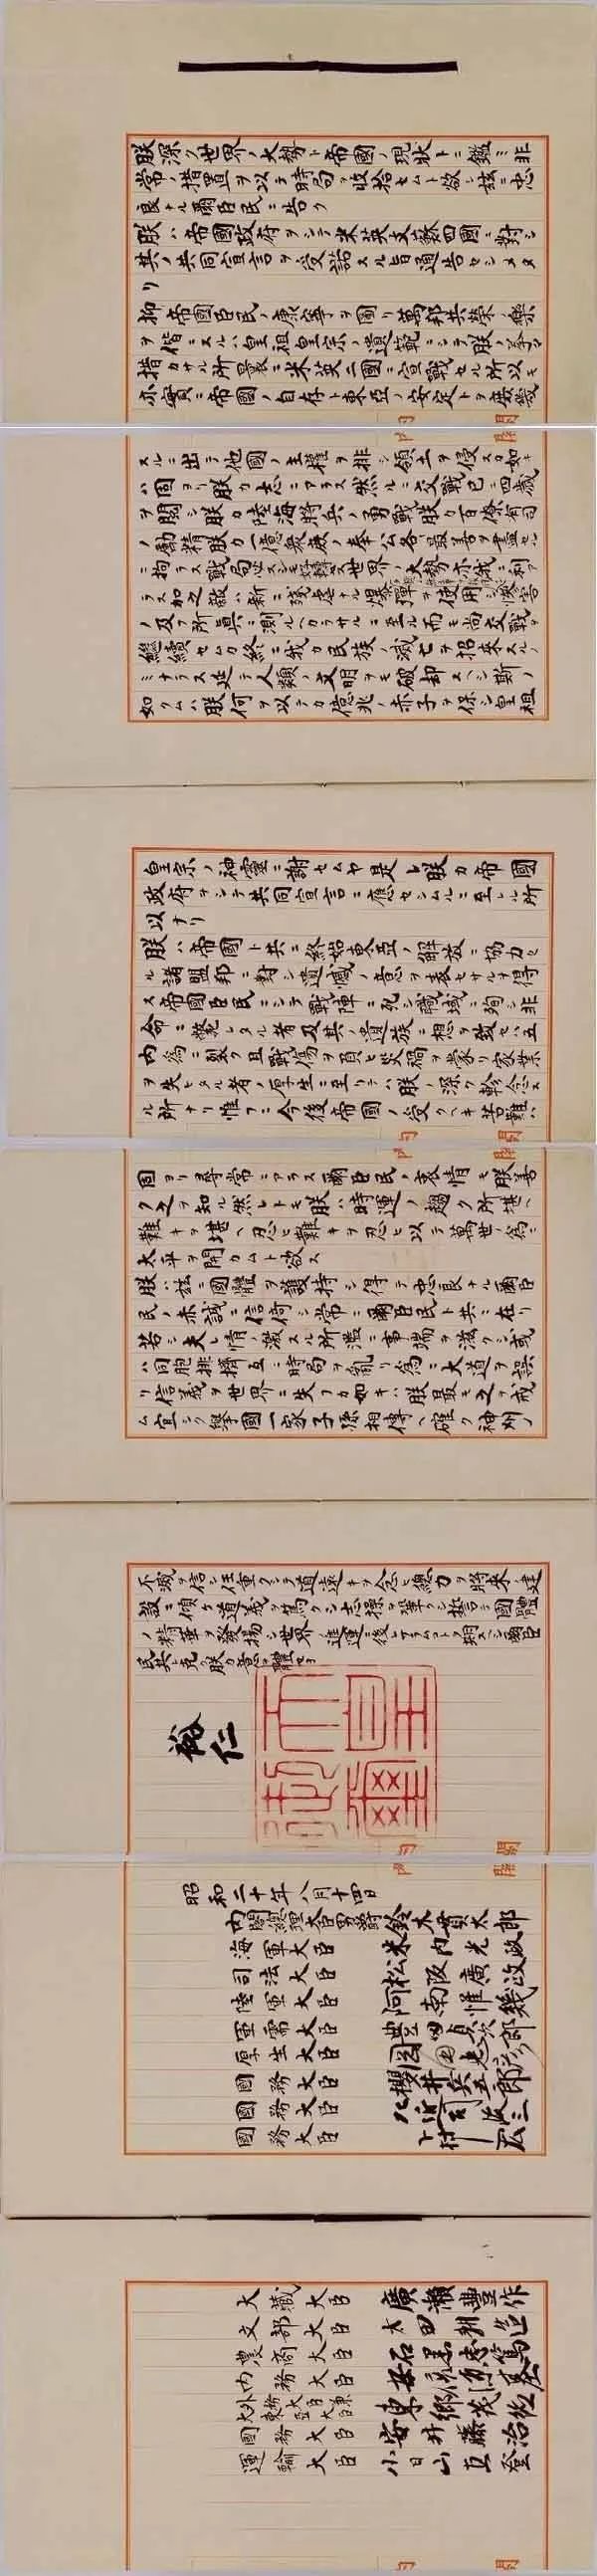 朕深ク世界ノ大勢ト帝國ノ現狀トニ鑑ミ非
常ノ措置ヲ以テ時局ヲ收拾セムト欲シ茲ニ忠
良ナル爾臣民ニ告ク
朕ハ帝國政府ヲシテ米英支蘇四國ニ對シ
其ノ共同宣言ヲ受諾スル旨通告セシメタ
リ
抑〻帝國臣民ノ康寧ヲ圖リ萬邦共榮ノ樂
ヲ偕ニスルハ皇祖皇宗ノ遺範ニシテ朕ノ拳々
措カサル所曩ニ米英二國ニ宣戰セル所以モ
亦實ニ帝國ノ自存ト東亞ノ安定トヲ庶幾
スルニ出テ他國ノ主權ヲ排シ領土ヲ侵スカ如キ
ハ固ヨリ朕カ志ニアラス然ルニ交戰已ニ四歲
ヲ閱シ朕カ陸海將兵ノ勇戰朕カ百僚有司
ノ勵精朕カ一億衆庶ノ奉公各〻最善ヲ盡セル
ニ拘ラス戰局必スシモ好轉セス世界ノ大勢亦我ニ利ア
ラス加之敵ハ新ニ殘虐ナル爆彈ヲ使用シテ頻ニ無辜ヲ殺傷シ慘害
ノ及フ所眞ニ測ルヘカラサルニ至ル而モ尚交戰ヲ
繼續セムカ終ニ我カ民族ノ滅亡ヲ招來スルノ
ミナラス延テ人類ノ文明ヲモ破却スヘシ斯ノ
如クムハ朕何ヲ以テカ億兆ノ赤子ヲ保シ皇祖
皇宗ノ神靈ニ謝セムヤ是レ朕カ帝國
政府ヲシテ共同宣言ニ應セシムルニ至レル所
以ナリ
朕ハ帝國ト共ニ終始東亞ノ解放ニ協力セ
ル諸盟邦ニ對シ遺憾ノ意ヲ表セサルヲ得
ス帝國臣民ニシテ戰陣ニ死シ職域ニ殉シ非
命ニ斃レタル者及其ノ遺族ニ想ヲ致セハ五
內爲ニ裂ク且戰傷ヲ負ヒ災禍ヲ蒙リ家業
ヲ失ヒタル者ノ厚生ニ至リテハ朕ノ深ク軫念ス
ル所ナリ惟フニ今後帝國ノ受クヘキ苦難ハ
固ヨリ尋常ニアラス爾臣民ノ衷情モ朕善
ク之ヲ知ル然レトモ朕ハ時運ノ趨ク所堪ヘ
難キヲ堪ヘ忍ヒ難キヲ忍ヒ以テ萬世ノ爲ニ
太平ヲ開カムト欲ス
朕ハ茲ニ國體ヲ護持シ得テ忠良ナル爾臣
民ノ赤誠ニ信倚シ常ニ爾臣民ト共ニ在リ
若シ夫レ情ノ激スル所濫ニ事端ヲ滋クシ或
ハ同胞排擠互ニ時局ヲ亂リ爲ニ大道ヲ誤
リ信義ヲ世界ニ失フカ如キハ朕最モ之ヲ戒
ム宜シク擧國一家子孫相傳ヘ確ク神州ノ
不滅ヲ信シ任重クシテ道遠キヲ念ヒ總力ヲ將來ノ建
設ニ傾ケ道義ヲ篤クシ志操ヲ鞏クシ誓テ國體
ノ精華ヲ發揚シ世界ノ進運ニ後レサラムコトヲ期スヘシ爾臣
民其レ克ク朕カ意ヲ體セヨ
裕仁
天皇御璽
昭和二十年八月十四日
內閣總理大臣男爵鈴木貫太郎
海軍大臣 米內光政
司法大臣 松阪廣政
陸軍大臣 阿南惟幾
軍需大臣 豊田貞次郎
厚生大臣 岡田忠彦
國務大臣 櫻井兵五郎
國務大臣 左近司政三
國務大臣 下村宏
大藏大臣 廣瀨豊作
文部大臣 太田耕造
農商大臣 石黒忠篤
內務大臣 安倍源基
外務大臣兼大東亞大臣 東郷茂德
國務大臣 安井藤治
運輸大臣 小日山直登